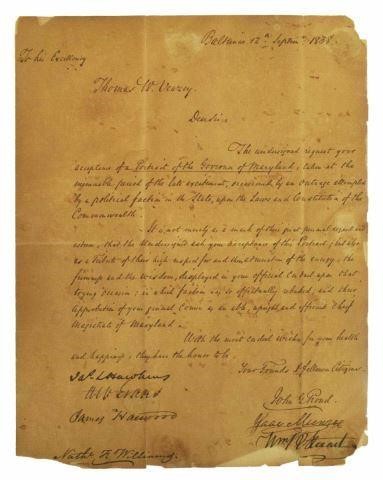 Baltimore 12th Septemr 1838.
To his Excellency
Thomas W. Veazey
Dear Sir
The undersigned request your
acceptance of a Portrait of the Governor of Maryland, taken at the
memorable period of the late excitement, occasioned by an outrage attempted
by a political faction in the State, upon the Laws and Constitution of the
Commonwealth.
It is not merely as a mark of their great personal regard and
esteem, that the Undersigned ask your acceptance of this Portrait; but also
as a tribute of their high respect for and admiration of the energy, the
firmness and the wisdom, displayed in your official conduct upon that
trying occasion; in which faction was so effectually rebuked, and their
approbation of your general course as an able, upright and efficient Chief
Magistrate of Maryland.
With the most cordial wishes for your health
and happiness, they have the honor to be,
Your Friends & Fellow Citizens
John G. Proud
Isaac Munroe
Wm P. Stewart
James Harwood
Nathl F. Williams